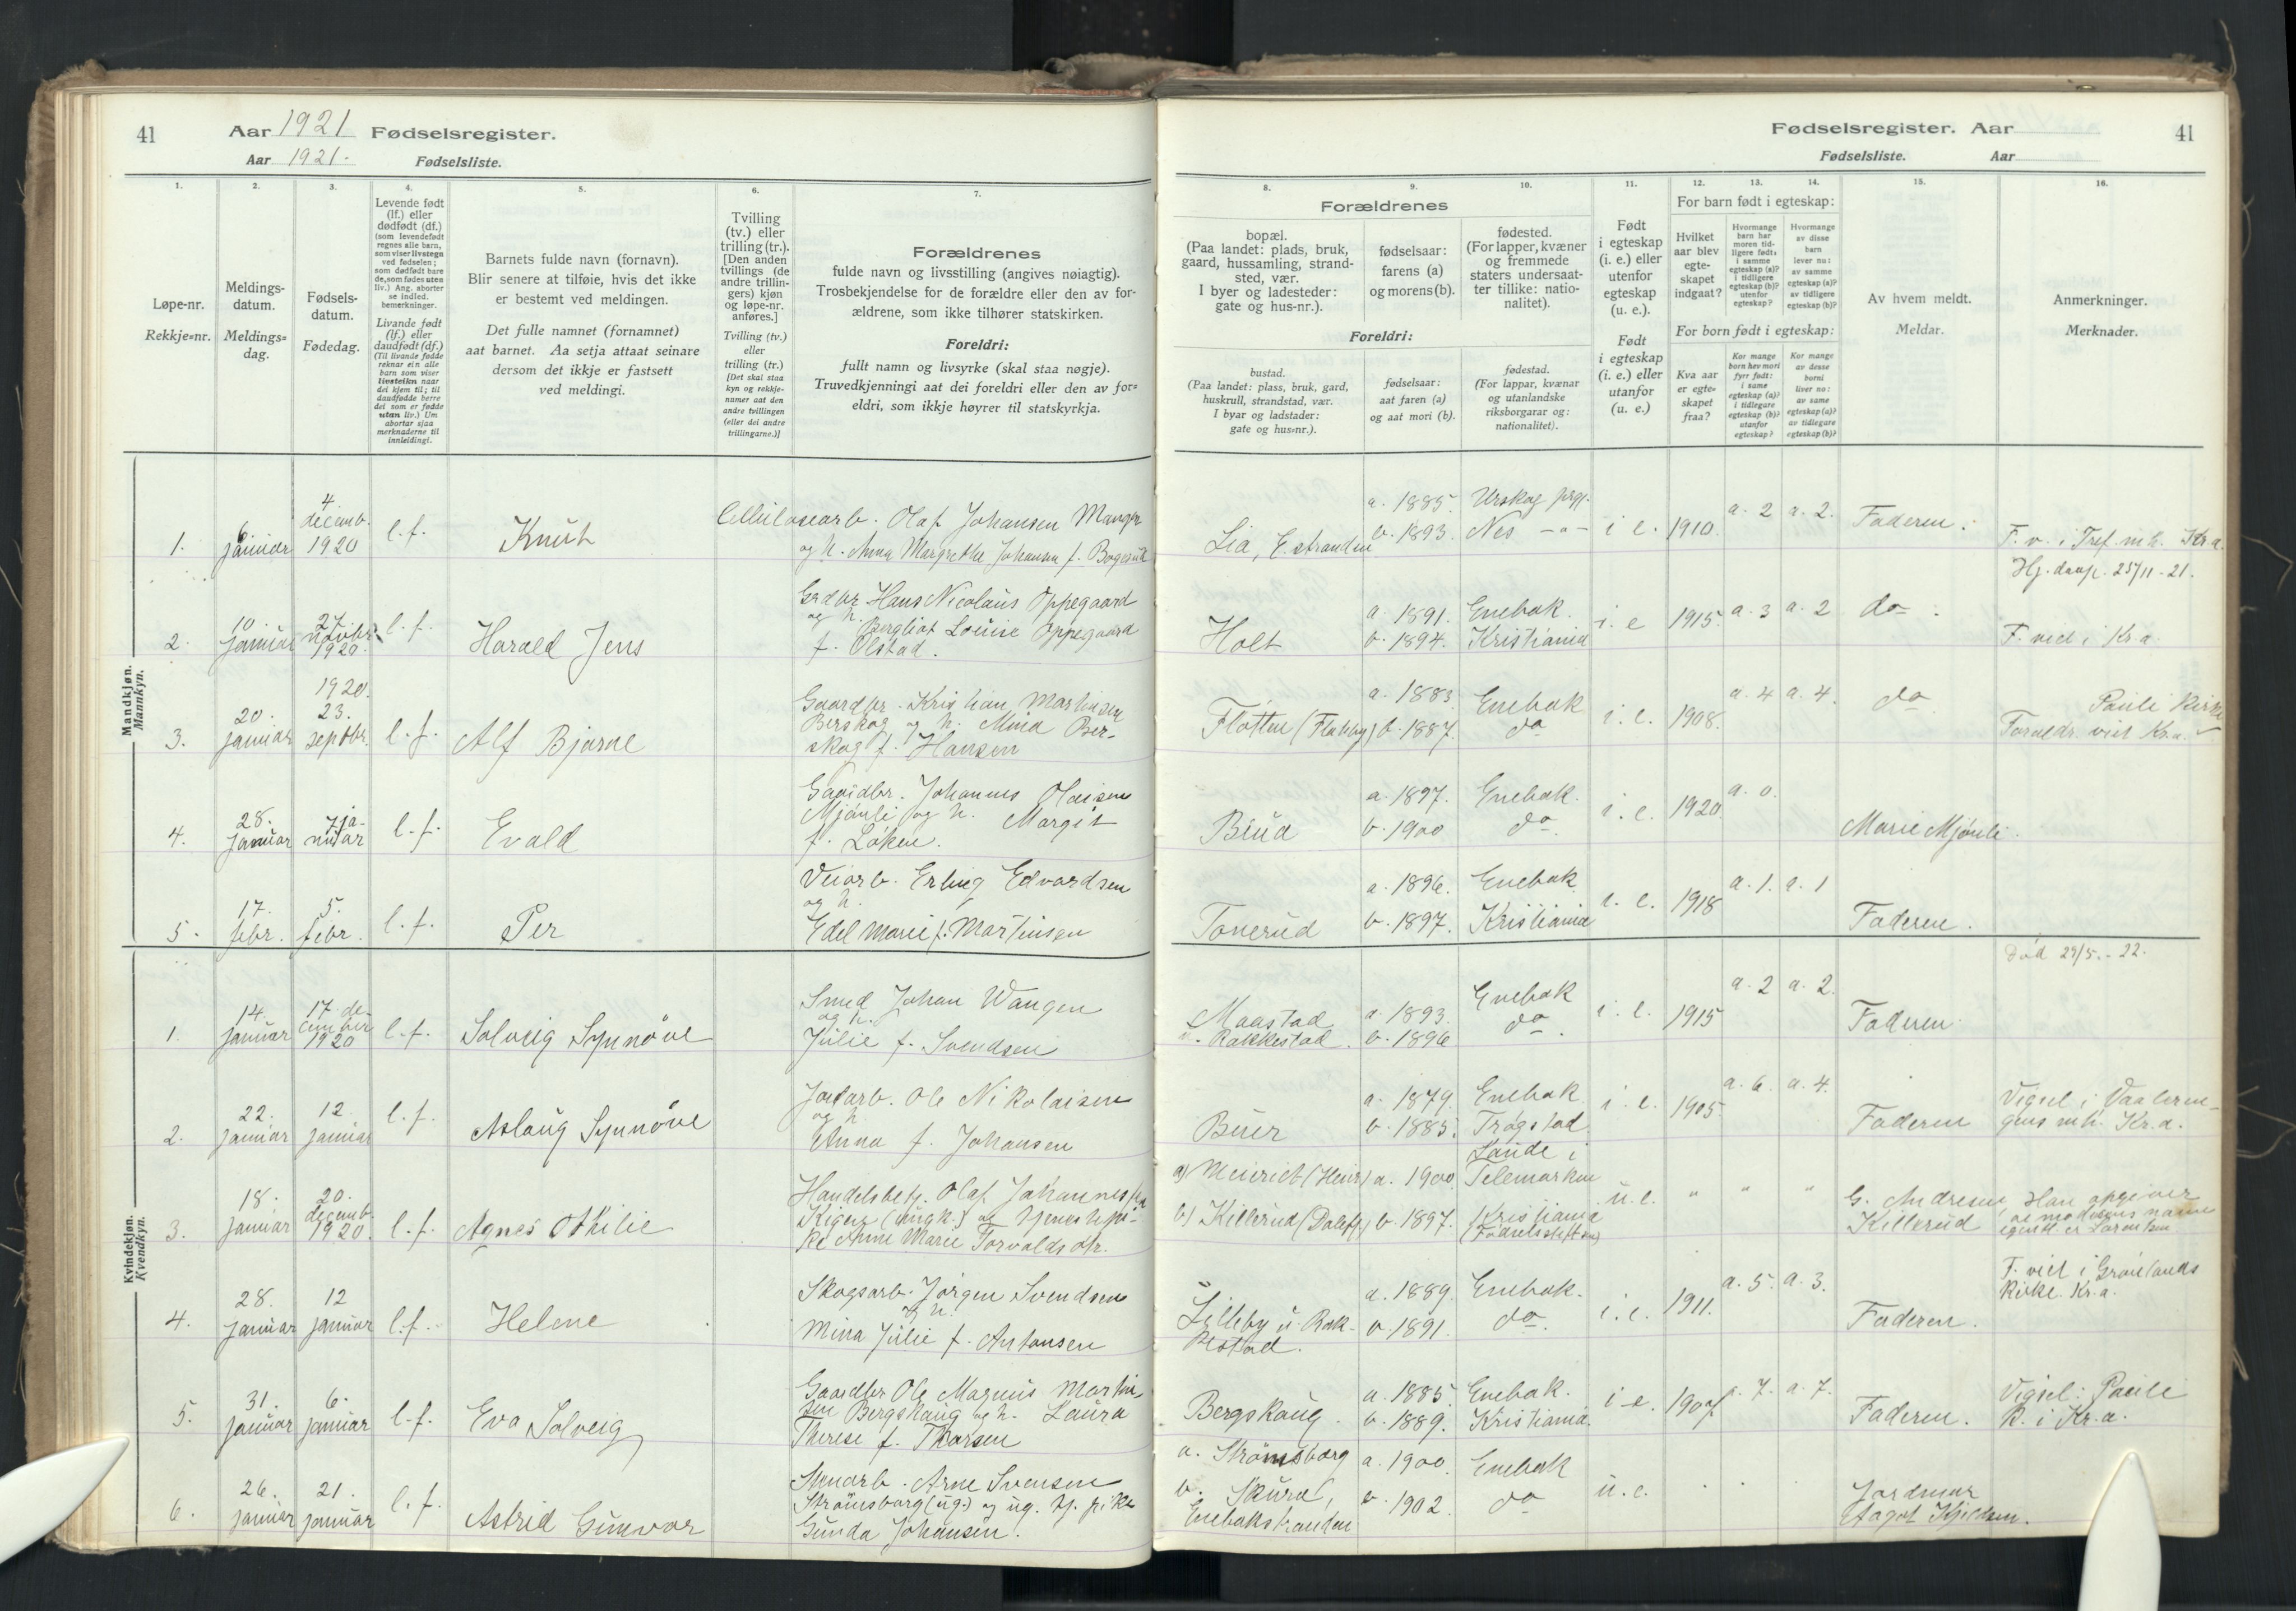 41
Aar 1921 Fødselsregister.
Aar 1921. Fødselsliste.
1.
2.
3.
4.
5.
6.
7.
Løpe-nr.
Rekkje=nr.
Meldings-
datum.
Meldings=
dag.
Fødsels-
datum.
Fødedag.
Levende født
(lf.) eller
dødfødt (df.)
(som levendefødt
regnes alle barn,
som viser livstegn
ved fødselen;
som dødfødt bare
de, som fødes uten
liv.) Ang. aborter
se indled.
bemerkninger.
Livande født
(lf.) eller
daudfødt (df.)
(Til livande fødde
reknar ein alle
barn som viser
livsteikn naar
dei kjem til; til
daudfødde berre
dei som er fødde
utan liv.) Um
abortar sjaa
merknaderne til
innleidingi.
Barnets fulde navn (fornavn).
Blir senere at tilføie, hvis det ikke
er bestemt ved meldingen.
Det fulle namnet (fornamnet)
aat barnet. Aa setja attaat seinare
dersom det ikkje er fastsett
ved meldingi.
Tvilling
(tv.) eller
trilling (tr.).
[Den anden
tvillings (de
andre trillin-
gers) kjøn
og løpe-nr.
anføres.]
Tvilling (tv.)
eller
trilling (tr.)
[Det skal staa
kyn og rekkje-
numer aat den
andre tvillingen
(eller dei andre
trillingarne.)]
Forældrenes
fulde navn og livsstilling (angives nøiagtig).
Trosbekjendelse for de forældre eller den av for-
ældrene, som ikke tilhører statskirken.
Foreldri:
fullt namn og livsyrke (skal staa nøgje).
Truvedkjenningi aat dei foreldri eller den av for=
eldri, som ikkje høyrer til statskyrkja.
Mandkjøn.
Mannkyn.
1. 6 januar 4 decemb. 1920 l.f. Knut
Cellulosearb. Olaf Johansen Manger
og h. Anna Margrethe Johansen f.
2. 10. januar 27. novbr. 1920. l.f. Harald Jens
Gaardbr. Hans Nicolaus Oppegaard
og h. Bergliot Louise Oppegaard
f. Olstad.
3. 20. januar 1920. 23. septbr. l.f. Alf Bjarne
Gaardbr. Kristian Martinsen
Berskog og h. Mina Ber-
skog f. Hansen
4. 28. januar 7 ja-nuar l.f. Evald
Gaardbr. Johannes Olaisen
Mjønli og h. Margit
f. Løken.
5. 17. febr. 5. febr. l.f. Per
Veiarb. Erling Edvardsen
og h.
Edel Marie f. Martinsen
Kvindekjøn.
Kvendkyn.
1. 14. januar 17 de-cember 1920 l.f. Solveig Synnöve
Smed Johan Wangen
og h.
Julie f. Svendsen
2. 22. januar 12 januar l.f. Aslaug Synnöve
Jordarb. Ole Nikolaisen
og h.
Anna f. Johansen
3. 18. januar 20. decemb. 1920. l.f. Agnes Othilie
Handelsbetj. Olaf Johannessen
Kigen (ungk.) og tjenestepi-
ke Anne Marie Torvaldsdtr.
4. 28. januar 12 januar l.f. Helene
Skogsarb. Jörgen Svendsen
og h.
Mina Julie f. Antonsen
5. 31. januar 6. januar l.f. Eva Solveig
Gaardbr Ole Magnus Martin-
sen Bergskaug og h. Laura
Therese f. Thorsen
6. 26. januar 21. januar l.f. Astrid Gunvor
Stenarb. Arne Svensen
Strömsborg (ug.) og ug. tj. pike
Gunda Johansen.
Fødselsregister. Aar
41
Fødselsliste. Aar
8.
9.
10.
11.
12.
13.
14.
15.
16.
Forældrenes
bopæl.
(Paa landet: plads, bruk,
gaard, hussamling, strand-
sted, vær.
I byer og ladesteder:
gate og hus-nr.).
fødselsaar:
farens (a)
og morens (b).
fødested.
(For lapper, kvæner
og fremmede
staters undersaat-
ter tillike: natio-
nalitet).
Foreldri:
bustad.
(Paa landet: plass, bruk, gard,
huskrull, strandstad, vær.
I byar og ladstader:
gate og hus=nr.).
fødselsaar:
aat faren (a)
og aat mori (b).
fødestad.
(For lappar, kvænar
og utanlandske
riksborgarar og:
nationalitet).
Født
i egteskap
(i. e.) eller
utenfor
egteskap
(u. e.).
Født
i egteskap
(i. e.) eller
utanfor
(u. e.)
For barn født i egteskap:
Hvilket
aar blev
egte-
skapet
indgaat?
Hvormange
barn har
moren tid-
ligere født:
i samme
egteskap (a)?
i tidligere
egteskap (b)?
utenfor
egteskap?
Hvormange
av disse
barn
lever nu:
av samme
egteskap (a)?
av tidligere
egteskap (b)?
For born født i egteskap:
Kva aar
er egte=
skapet
fraa?
Kor mange
born hev mori
fyrr født:
i same
egteskap (a)?
i tidlegare
egteskap (b)?
utanfor
egteskap?
Kor mange
av desse
borni
liver no:
av same
egteskap (a)?
av tidlegare
egteskap (b)?
Av hvem meldt.
Meldar.
Anmerkninger.
Merknader.
Lia, E.stranden a. 1885. b. 1893. Urskog prgj. Nes -"- i e. 1910. a. 2 a. 2. Faderen.
F. v. i Tref. mh. Kr.a.
Hj. daap. 25/11-21.
Holt a. 1891. b. 1894. Enebak. Kristiania i. e 1915. a. 3 a. 2 do.
F. viet i Kr.a.
Flatten (Flateby) a. 1883. b. 1887. Enebak do i. e. 1908. a. 4 a. 4. do
Pauli Kirke
Foreldr. viet Kr.a.
Brua a. 1897. b. 1900 Enebak. do. i. e. 1920. a. 0. Marie Mjönli.
Tonerud a. 1896. b. 1897. Enebak. Kristiania i. e. 1918 a. 1. a. 1 Faderen.
Död 29/5.-22.
Maastad u. Rakkestad. a. 1893. b. 1896 Enebak do. i. e. 1915 a. 2 a. 2. Faderen.
Buer a. 1879. b. 1885. Enebak Trøgstad i. e. 1905. a. 6. a. 4. Faderen
Vigsel i Vaaleren-
gens mh. Kr.a.
a) (Heier) a. 1900. Saude i Telemarken
b) Killerud (Dalefj.) b. 1897. Kristiania (Fødselsstiftelsen) u.e. " " " G. Andresen, Killerud
Han opgiver
at moderens navn
egentl. er Lorentsen
Lilleby u. Rak-kestad. a. 1889. b. 1891. Enebak. do. i. e. 1911. a. 5. a. 3. Faderen.
F. viet i Grönlands
Kirke. Kr.a.
Bergskaug. a. 1885. b. 1889. Enebak. Kristiania. i e. 1907. a. 7. a. 7. Faderen.
Vigsel: Pauli
K. i Kr.a.
a. Strömsborg a. 1900. Enebak
b. Skura, Enebakstranden b. 1902. do u.e. Jordmor
Aagot Kjelsen.